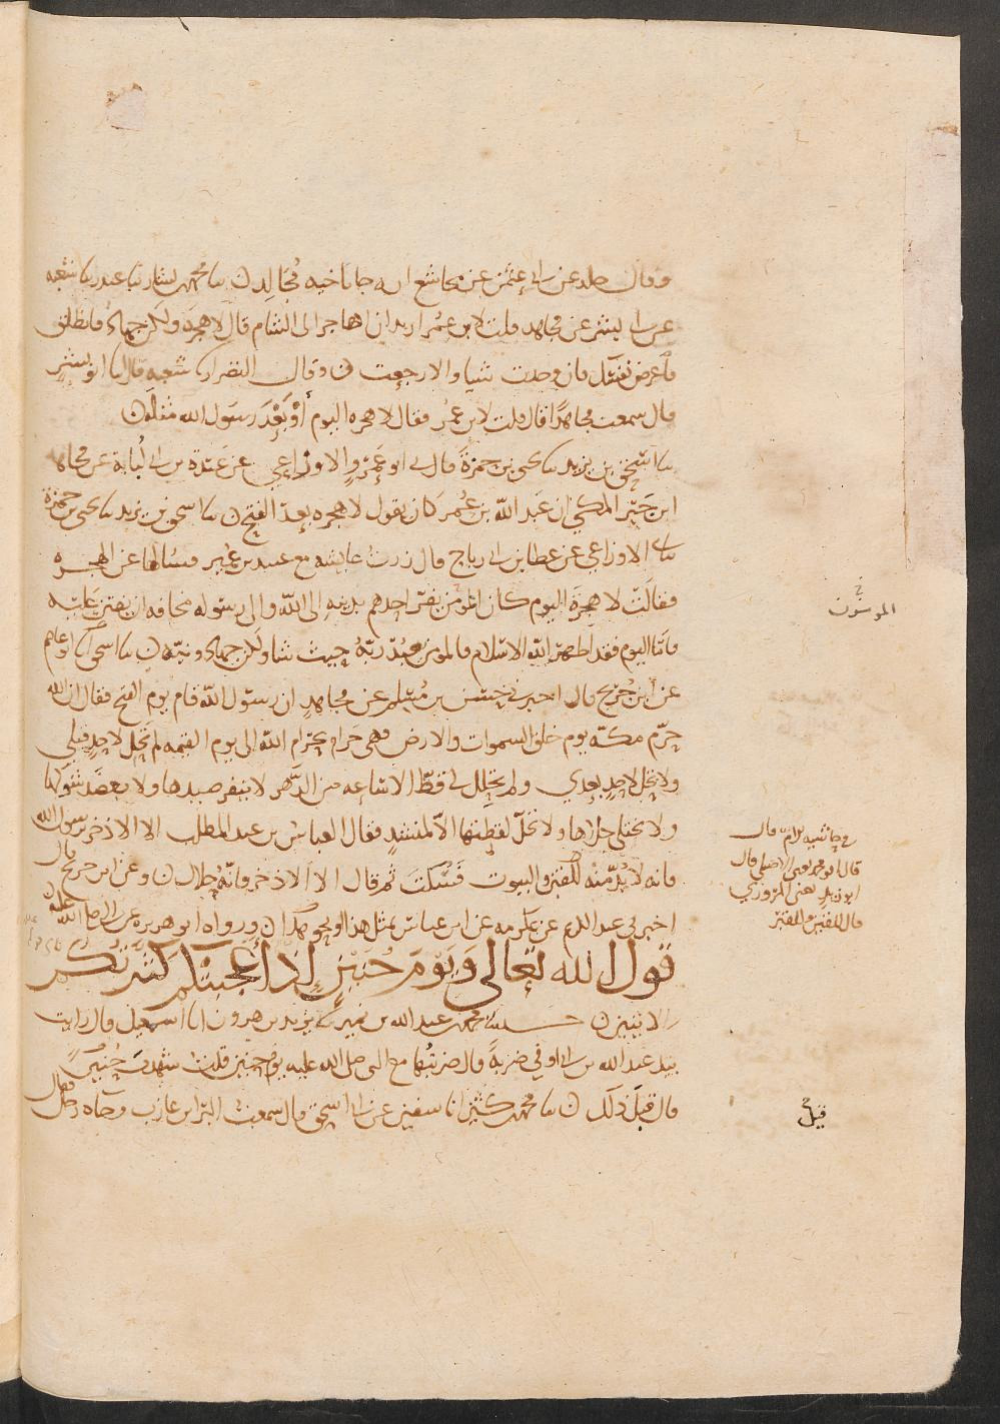 وقال خلد عن ابى عثمن عن مجاشع انه جا باخيه مجالد ن ثنا محمد بن بشار ثنا غندر ثنا شعبه
عن ابى بشر عن مجاهد قلت لابن عمر اريد ان اهاجر الى الشام قال لا هجرة ولكن جهاد فانطلق
فاعرض نفسك فان وجدت شيا والا رجعت ن وقال النضر انا شعبه قال انا ابو بشر
قال سمعت مجاهدا قال قلت لابن عمر فقال لا هجره اليوم أو بعد رسول الله مثله ن
ثنا اسحق بن يزيد ثنا يحيى بن حمزة قال ابو عمرو الاوزاعي عن عبدة بن ابى لبابة عن مجاهد
ابن جبر المكي ان عبد الله بن عمر كان يقول لا هجره بعد الفتح ن ثنا اسحق بن يزيد ثنا يحيى بن حمزة
الاوزاعي عن عطا بن ابى رباح قال زرت عايشه مع عبيد بن عمير فسالها عن الهجره
فقالت لا هجرة اليوم كان المومن يفر احدهم بدينه الى الله والى رسوله مخافه ان يفتن عليه
فاما اليوم فقد اظهر الله الاسلام فالمومن يعبد ربه حيث شا ولكن جهاد ونيه ن ثنا اسحق ابو عاصم
عن ابن جريج قال اخبرني حسن بن مسلم عن مجاهد ان رسول الله قام يوم الفتح فقال ان الله
حرم مكة يوم خلق السموات والارض فهى حرام بحرام الله الى يوم القيمه لم تحل لاحد قبلي
ولا تحل لاحد بعدي ولم تحلل لي قط الا ساعه من الدهر لا ينفر صيدها ولا يعضد شوكها
ولا تختلى خلاها ولا تحل لقطتها الا لمنشد فقال العباس بن عبد المطلب الا الاذخر يرسول الله
فانه لا بد منه للقين والبيوت فسكت ثم قال الا الاذخر فانه حلال ن وعن ابن جريج قال
اخبرني عبد الكريم عن عكرمه عن ابن عباس بمثل هذا او نحو هذا ن ورواه ابو هريره عن النبى صلى الله عليه
قول الله تعالى ويوم حنين إذ أعجبتكم كثرتكم
الايتين ن محمد بن عبد الله بن نمير ثنا يزيد بن هرون انا اسمعيل قال رايت
بيد عبد الله بن ابى اوفى ضربة قال ضربتها مع النبى صلى الله عليه يوم حنين قلت شهدت حنينا
قال قبل ذلك ن ثنا محمد بن كثير انا سفين عن ابى اسحق قال سمعت البرا بن عازب وجاه رجل فقال
المومنون
في حاشيه قال
قال ابو محمد يعنى الاصيلي قال
ابو زيد يعنى المروزي
قال للقين
قبل